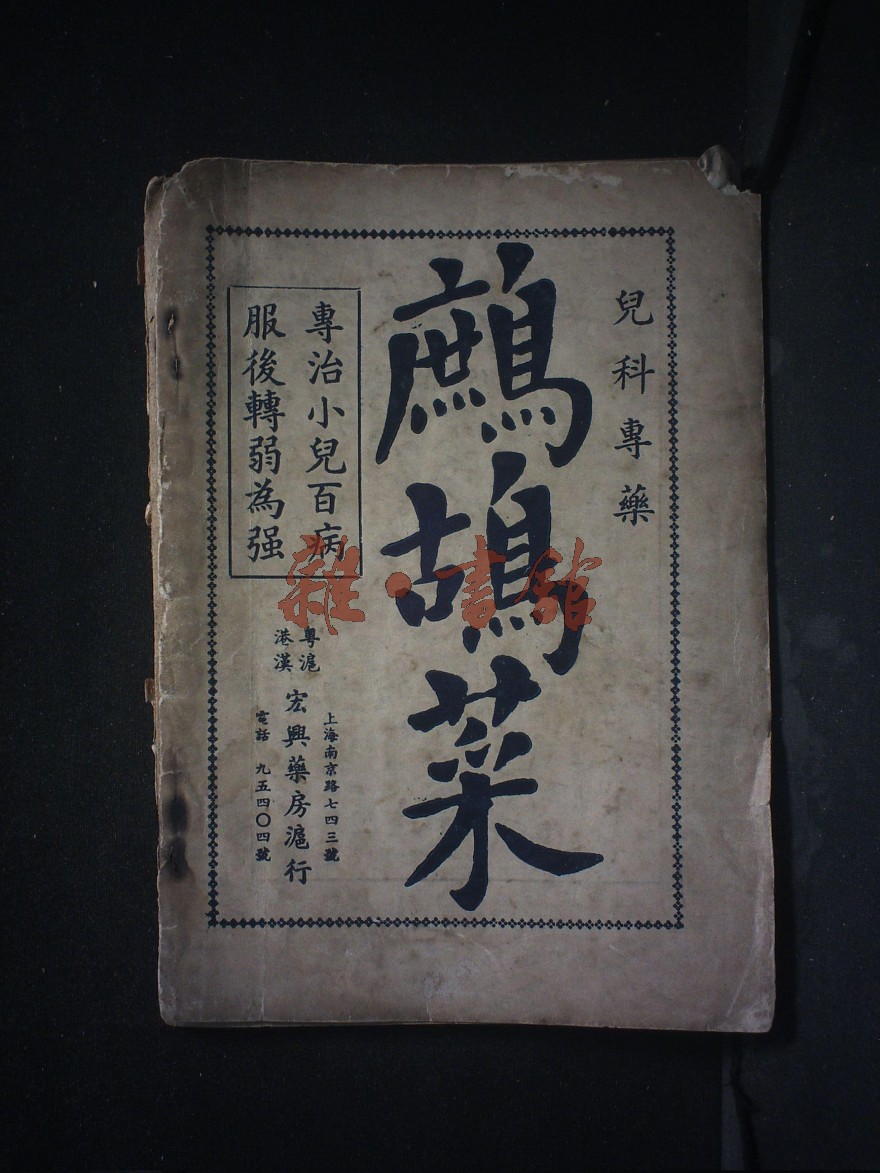 兒科專藥
鷓鴣菜
專治小兒百病
服後轉弱為强
粤滬
港漢
上海南京路七四三號
宏興藥房滬行
電話 九五四〇四號
雜·書館